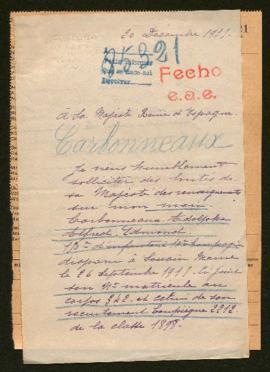 20 Décembre 1915.
25321
Fecho
e.a.e.
A Sa Majesté Reine d'Espagne
Carbonneaux
Je viens humblement
solliciter des bontés de
sa Majesté des renseignements
sur mon mari
Carbonneaux Adolphe
Alfred Edmond
disparu à Souain Marne
le 26 septembre 1915. Ci-joint
son Nº matricule au
corps et celui de son
recrutement Compiègne 2212
de la classe 1898.